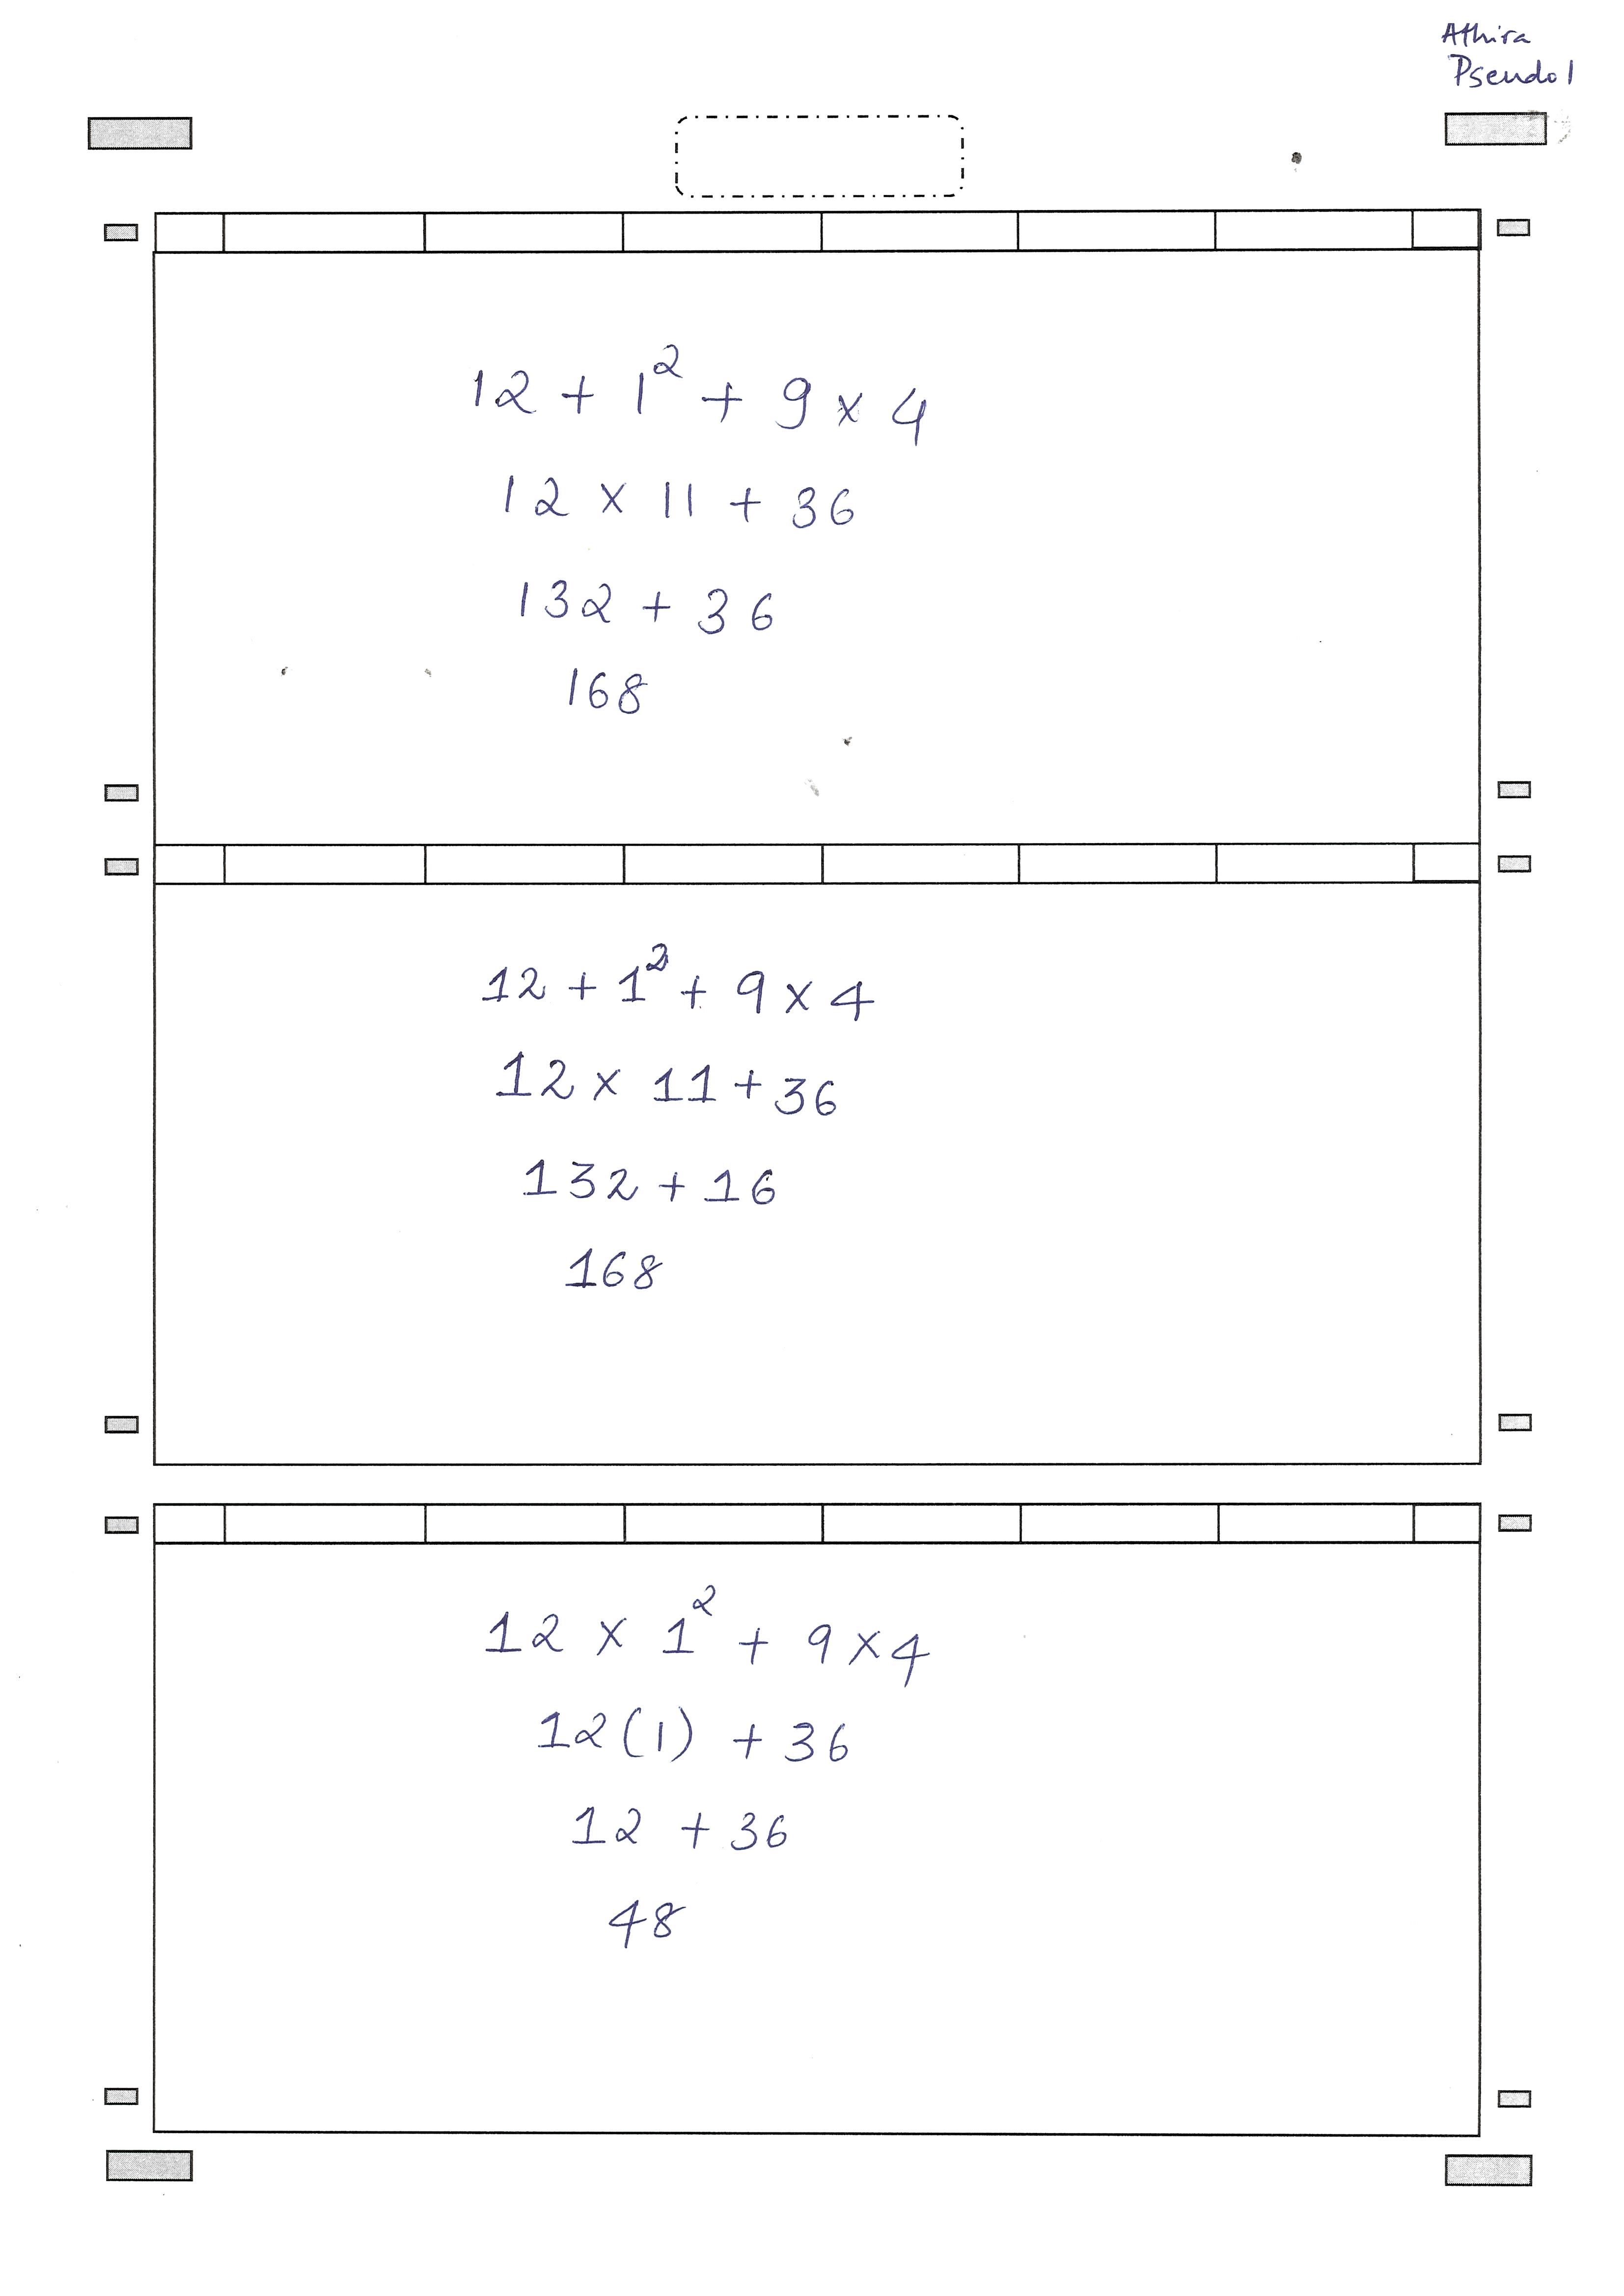 Athira
Pseudo1
12 + 1² + 9 × 4
12 × 11 + 36
132 + 36
168
12 + 1² + 9 × 4
12 × 11 + 36
132 + 16
168
12 × 1² + 9 × 4
12(1) + 36
12 + 36
48